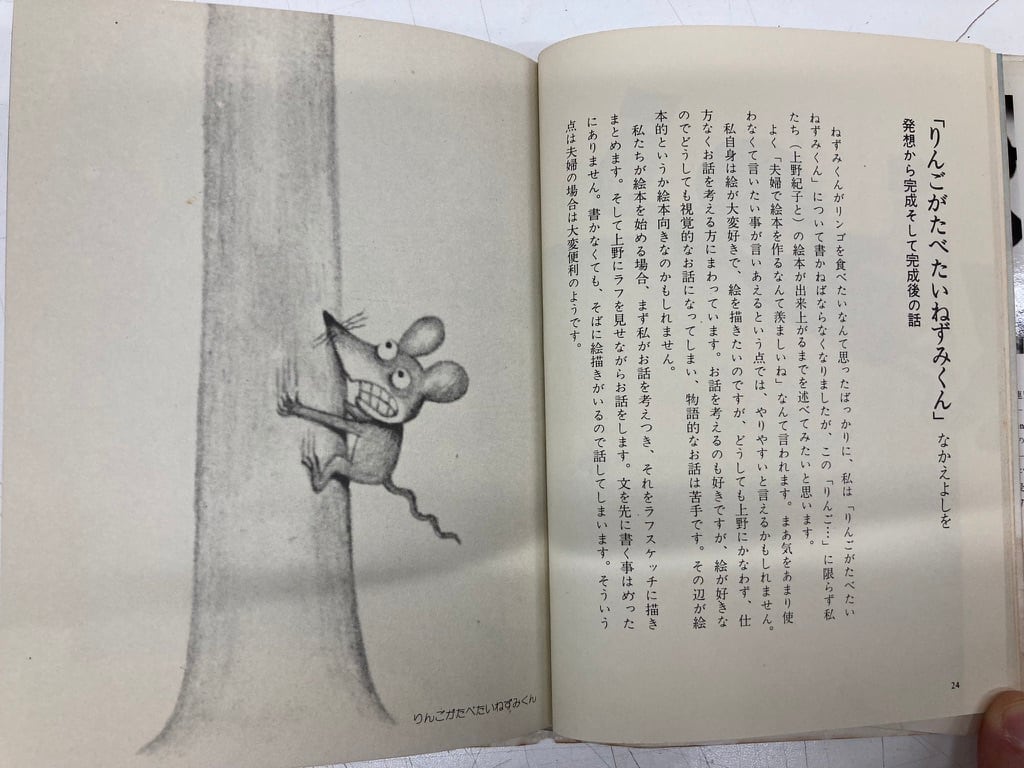 「りんごがたべたいねずみくん」 なかえよしを
発想から完成そして完成後の話
ねずみくんがリンゴを食べたいなんて思ったばっかりに、私は「りんごがたべたい
ねずみくん」について書かねばならなくなりましたが、この「りんご…」に限らず私
たち（上野紀子と）の絵本が出来上がるまでを述べてみたいと思います。
よく「夫婦で絵本を作るなんて羨ましいね」なんて言われます。まあ気をあまり使
わなくて言いたい事が言いあえるという点では、やりやすいと言えるかもしれません。
私自身は絵が大変好きで、絵を描きたいのですが、どうしても上野にかなわず、仕
方なくお話を考える方にまわっています。お話を考えるのも好きですが、絵が好きな
のでどうしても視覚的なお話になってしまい、物語的なお話は苦手です。その辺が絵
本的というか絵本向きなのかもしれません。
私たちが絵本を始める場合、まず私がお話を考えつき、それをラフスケッチに描き
まとめます。そして上野にラフを見せながらお話をします。文を先に書く事はめった
にありません。書かなくても、そばに絵描きがいるので話してしまいます。そういう
点は夫婦の場合は大変便利のようです。
24
りんごがたべたいねずみくん